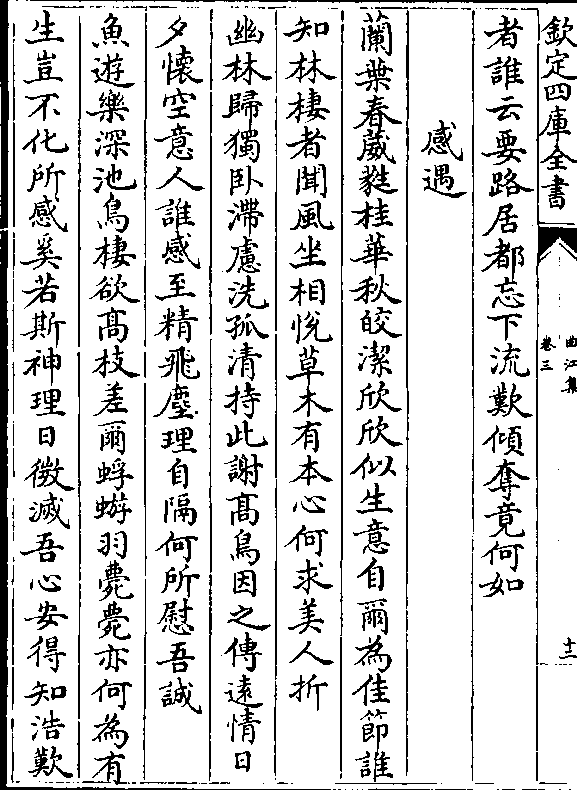 欽定四庫全書
曲江集
卷三
十二
者誰云要路居都忘下流歎傾奪竟何如
感遇
蘭葉春葳蕤桂華秋皎潔欣欣似生意自爾為佳節誰
知林棲者聞風坐相悅草木有本心何求美人折
幽林歸獨卧滯慮洗孤清持此謝髙鳥因之傳逺情日
夕懷空意人誰感至精飛塵理自隔何所慰吾誠
魚遊樂深池鳥棲欲髙枝差爾蜉蝣羽薨薨亦何為有
生豈不化所感奚若斯神理日微滅吾心安得知浩歎